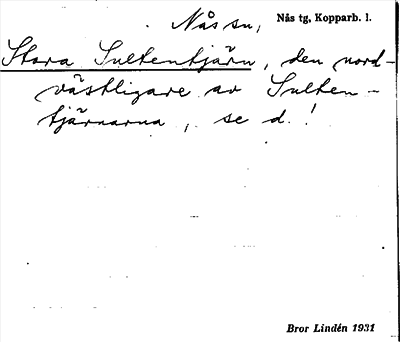 Nås sn, Nås tg, Kopparb. l.
Stora Sultentjärn, den nord-
västligare av Sulten-
tjärnarna, se d.!
Bror Lindén 1931